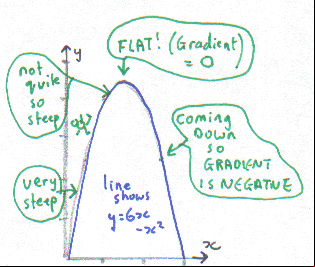 FLAT! (Gradient)
= 0
y
not
quite
so
steep
coming
DOWN
so
GRADIENT
IS NEGATIVE
very
steep
line
shows
y=6x
-x²
x